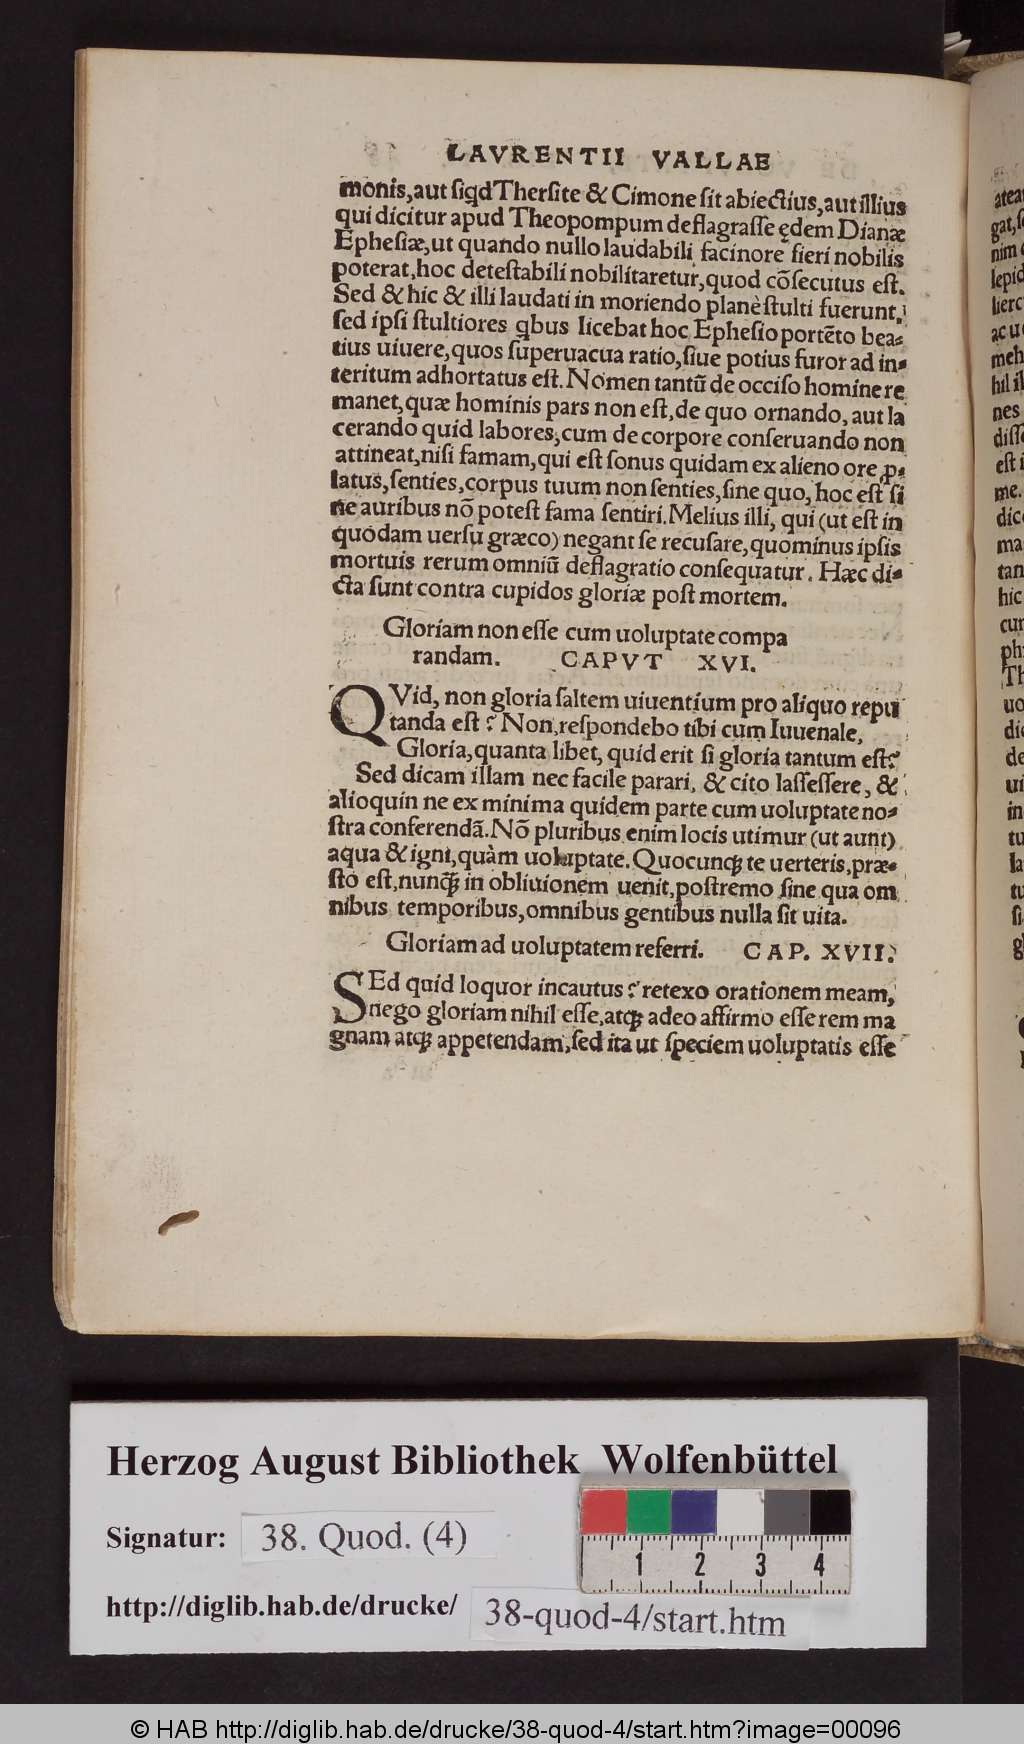 LAVRENTII VALLAE
monis, aut siqd Thersite & Cimone sit abiectius, aut illius
qui dicitur apud Theopompum deflagrasse ędem Dianæ
Ephesiæ, ut quando nullo laudabili facinore fieri nobilis
poterat, hoc detestabili nobilitaretur, quod cõsecutus est.
Sed & hic & illi laudati in moriendo planè stulti fuerunt.
sed ipsi stultiores qbus licebat hoc Ephesio portẽto bea-
tius uiuere, quos superuacua ratio, siue potius furor ad in-
teritum adhortatus est. Nomen tantũ de occiso homine re
manet, quæ hominis pars non est, de quo ornando, aut la
cerando quid labores, cum de corpore conseruando non
attineat, nisi famam, qui est sonus quidam ex alieno ore ꝓ-
latus, senties, corpus tuum non senties, sine quo, hoc est si
ne auribus nõ potest fama sentiri. Melius illi, qui (ut est in
quodam uersu græco) negant se recusare, quominus ipsis
mortuis rerum omniũ deflagratio consequatur. Hæc di-
cta sunt contra cupidos gloriæ post mortem.
Gloriam non esse cum uoluptate compa
randam. CAPVT XVI.
QVid, non gloria saltem uiuentium pro aliquo repu
tanda est? Non, respondebo tibi cum Iuuenale,
Gloria, quanta libet, quid erit si gloria tantum est?
Sed dicam illam nec facile parari, & cito lassessere, &
alioquin ne ex minima quidem parte cum uoluptate no-
stra conferendã. Nõ pluribus enim locis utimur (ut aunt)
aqua & igni, quàm uoluptate. Quocunqꝫ te uerteris, præ-
sto est, nunqꝫ in obliuionem uenit, postremo sine qua om
nibus temporibus, omnibus gentibus nulla sit uita.
Gloriam ad uoluptatem referri. CAP. XVII.
SEd quid loquor incautus? retexo orationem meam,
nego gloriam nihil esse, atqꝫ adeo affirmo esse rem ma
gnam atqꝫ appetendam, sed ita ut speciem uoluptatis esse
Herzog August Bibliothek Wolfenbüttel
Signatur: 38. Quod. (4)
1 2 3 4
http://diglib.hab.de/drucke/ 38-quod-4/start.htm
© HAB http://diglib.hab.de/drucke/38-quod-4/start.htm?image=00096